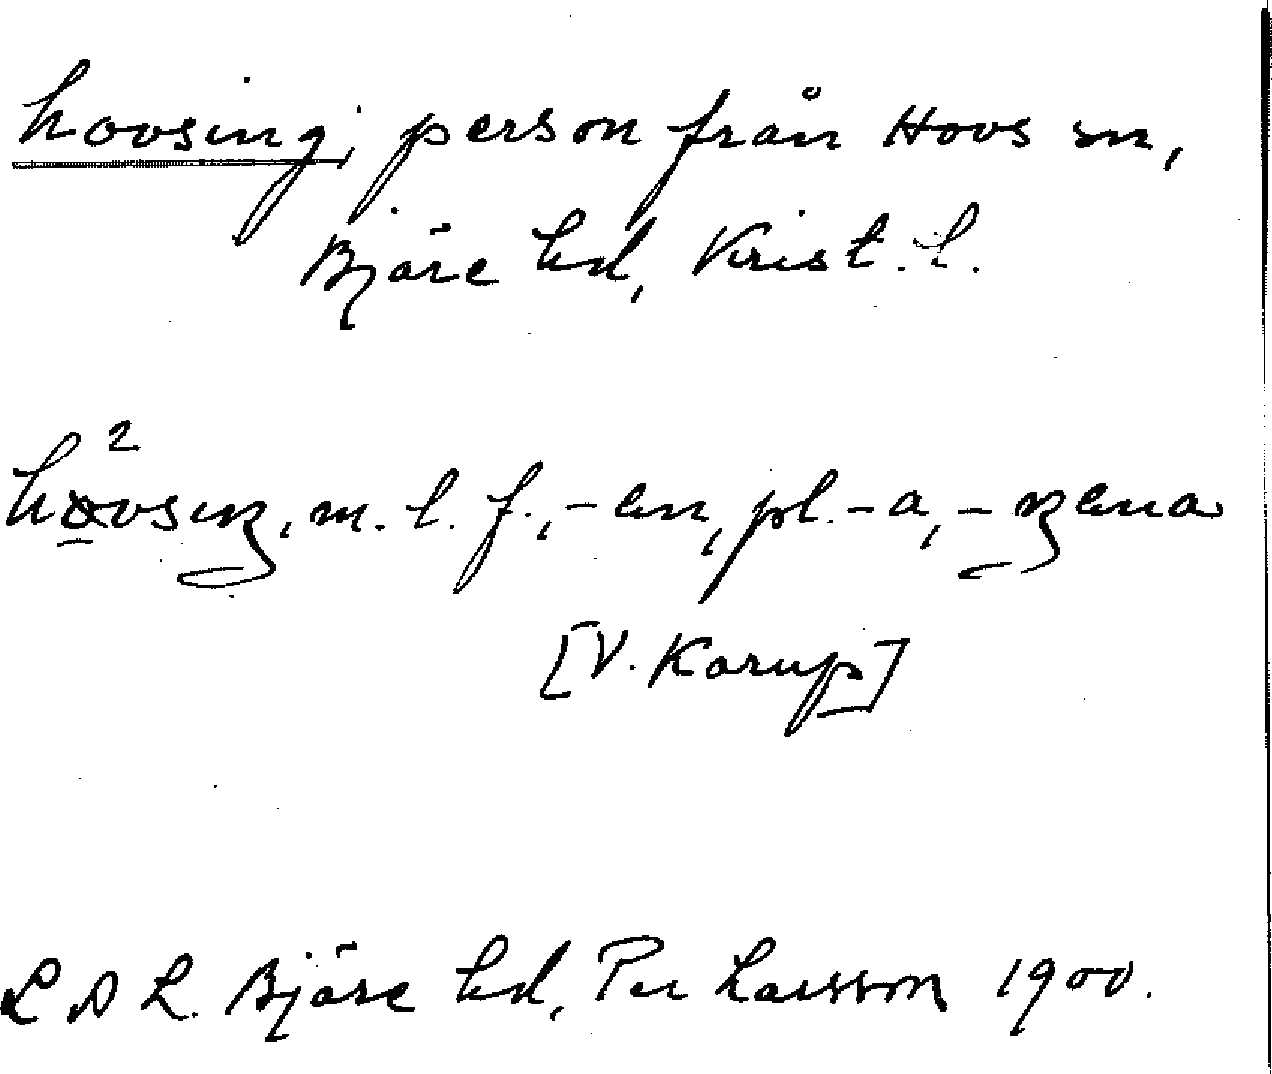 hovsing, person från Hovs sn,
Bjäre hd, Krist. l.
hɔ²vsiŋ, m. l. f., -en, pl. -a, -ŋena
[V. Karup]
L A L. Bjäre hd, Per Larsson 1900.